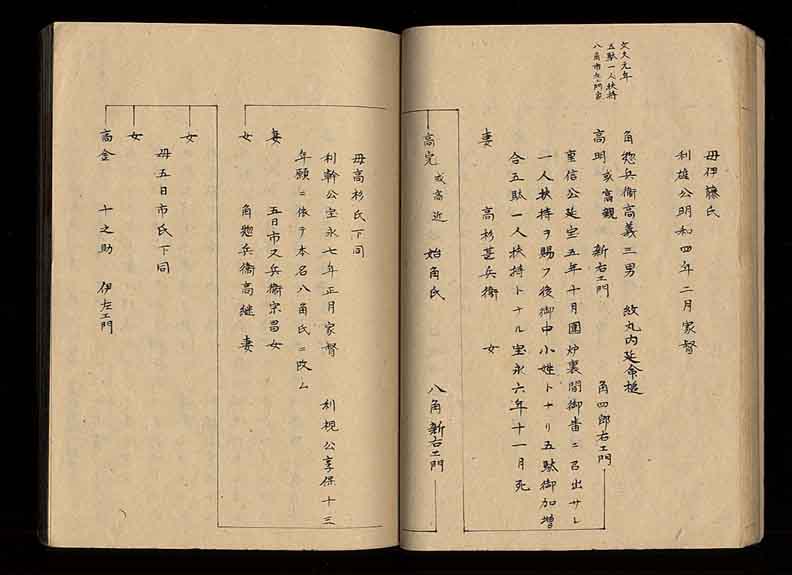 母伊藤氏
利雄公明和四年二月家督
文久元年
五駄一人扶持
八角市左エ門家
角惣兵衛高義三男　紋丸内延命槌
高明　或高親　新右エ門　角四郎右エ門
重信公延宝五年十月囲炉裏間御番ニ召出サレ
一人扶持ヲ賜フ後御中小姓トナリ五駄御加増
合五駄一人扶持トナル宝永六年十一月死
妻　高杉甚兵衛　女
高完　或高近　始角氏　八角新右エ門
母高杉氏下同
利幹公宝永七年正月家督　利視公享保十三
年願ニ依テ本名八角氏ニ改ム
妻　五日市又兵衛宗昌女
女　角惣兵衛高継　妻
女
母五日市氏下同
女
高金　十之助　伊左エ門